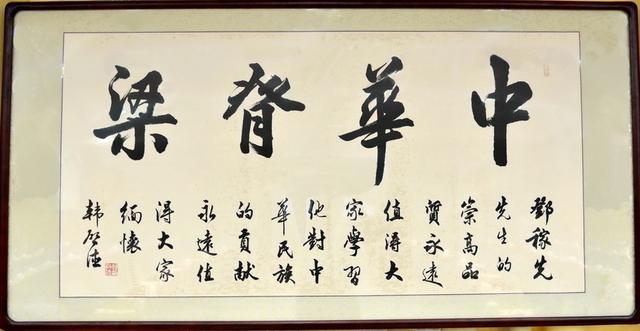 中華脊梁
鄧稼先
先生的
崇高品
質永遠
值得大
家學習
他對中
華民族
的貢獻
永遠值
得大家
緬懷
韩启德